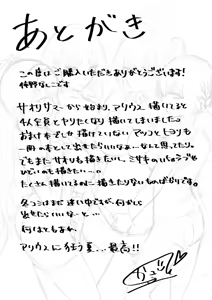 あとがき
この度はご購入いただきありがとうございます!
サオリサマーから始まり、アリウス描いてると
全員とヤりたくなり描いてしまいました。
おまけ本でしか描いていないアツコとヒヨリも
一冊の本として出せたらいいなぁ…なんて思ってたり。
でもまたサオリも描きたいし、ミサキの
ひどいのも描きたい…。
たくさん描いてるのに描きたりないものばかりです。
冬コミはまだ迷い中ですが、何かしら
出せたらいいなーと…
何はともあれ、
アリウスに狂う夏…最高!!